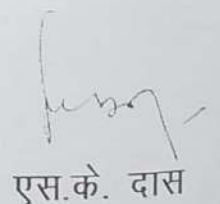 एस.के. दास